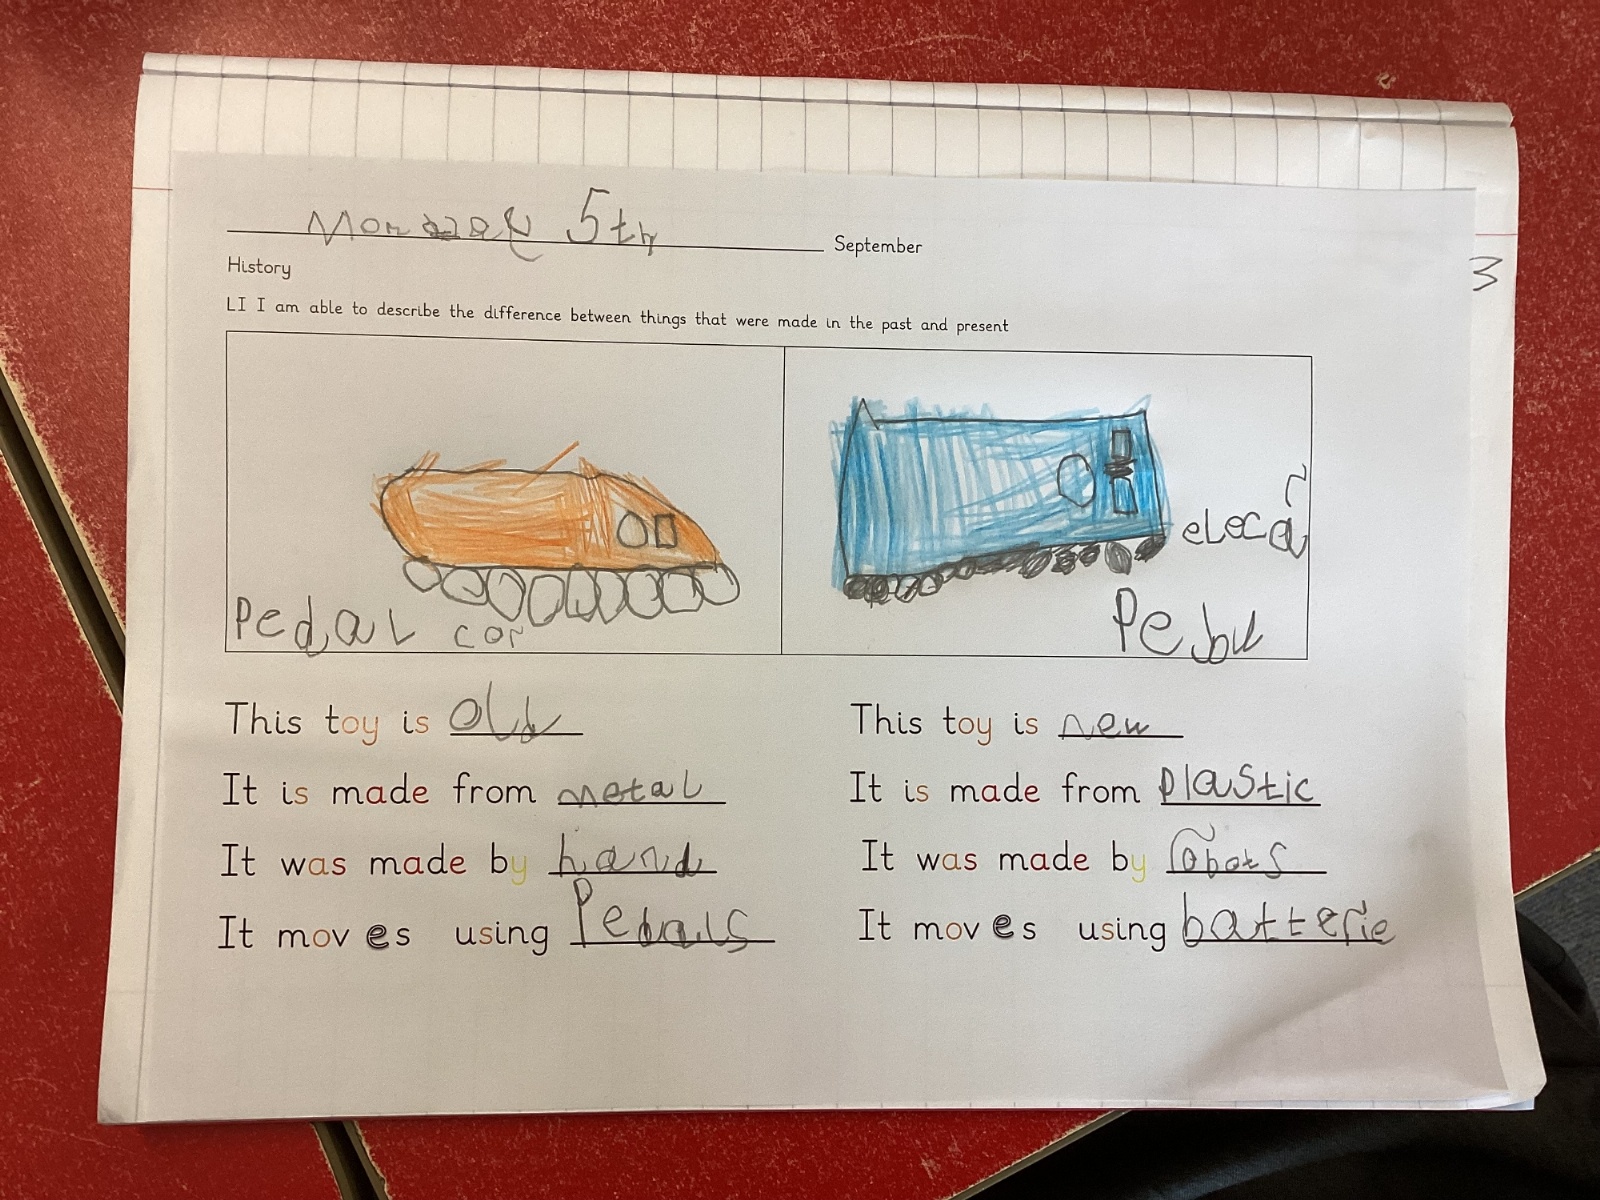 Monday 5th September
3
History
LI I am able to describe the difference between things that were made in the past and present
Pedal car
elecar
This toy is old
It is made from metal
It was made by hand
It moves using Pedals
This toy is new
It is made from plastic
It was made by robots
It moves using batterie